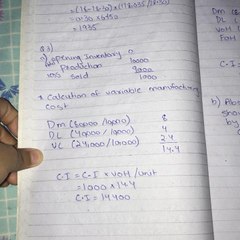 = (18-18.30) × (118.055/18.30)
= 0.30 × 6450
= 1935
Q3)
a) opening Inventory 0
production 10000
less sold 9000
1000
* Calculation of variable manufacturing
cost
Dm (80000/10000) 8
DL (40000/10000) 4
VC (24000/10000) 2.4
14.4
C.I = C.I × VOH/unit
= 1000 × 14.4
C.I = 14400
Dm (8
DL (
VOH (
FOH
C.I =
b) Abs
show
by